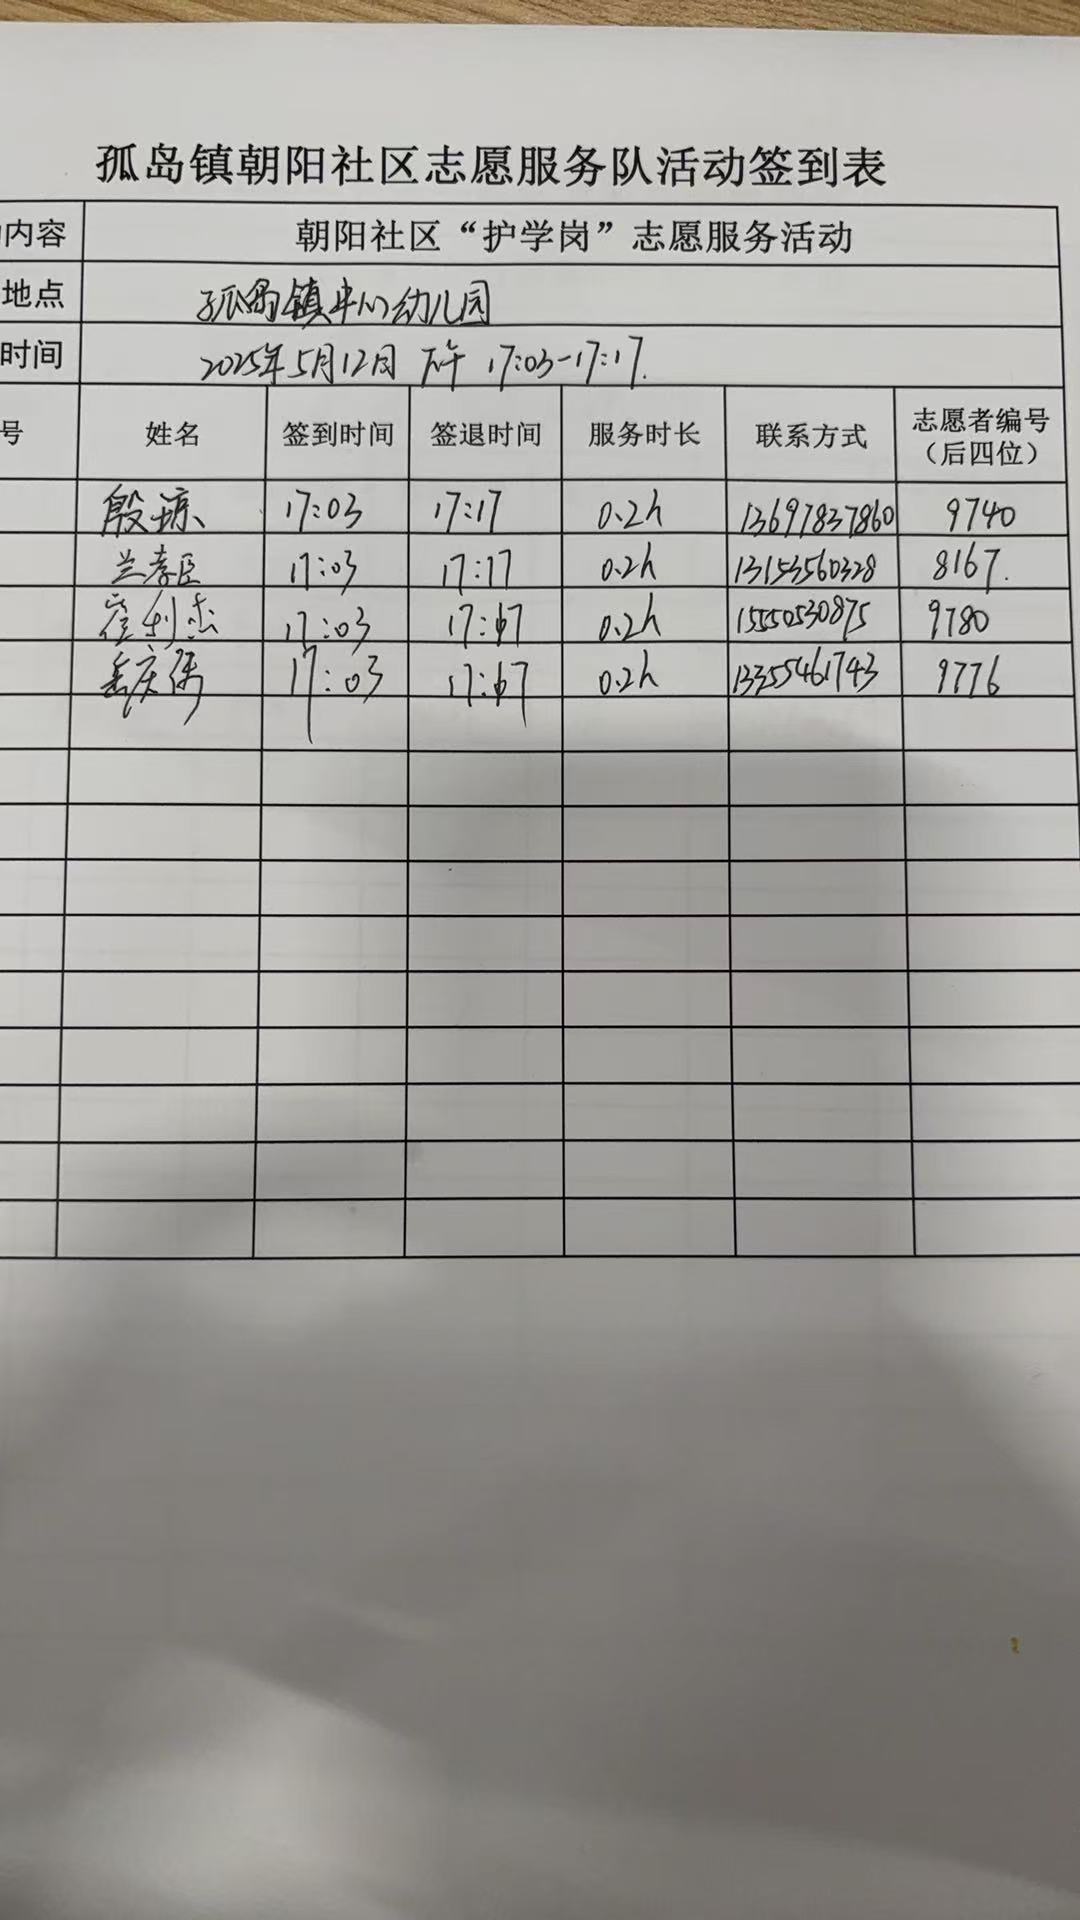 孤岛镇朝阳社区志愿服务队活动签到表
内容 朝阳社区“护学岗”志愿服务活动
地点 孤岛镇中心幼儿园
时间 2025年5月12日 下午 17:03-17:17.
号 姓名 签到时间 签退时间 服务时长 联系方式 志愿者编号
（后四位）
殷琼 17:03 17:17 0.2h 13697837860 9740
兰孝臣 17:03 17:17 0.2h 13153560328 8167.
崔利杰 17:03 17:17 0.2h 15550530875 9780
17:03 17:17 0.2h 13355461743 9776